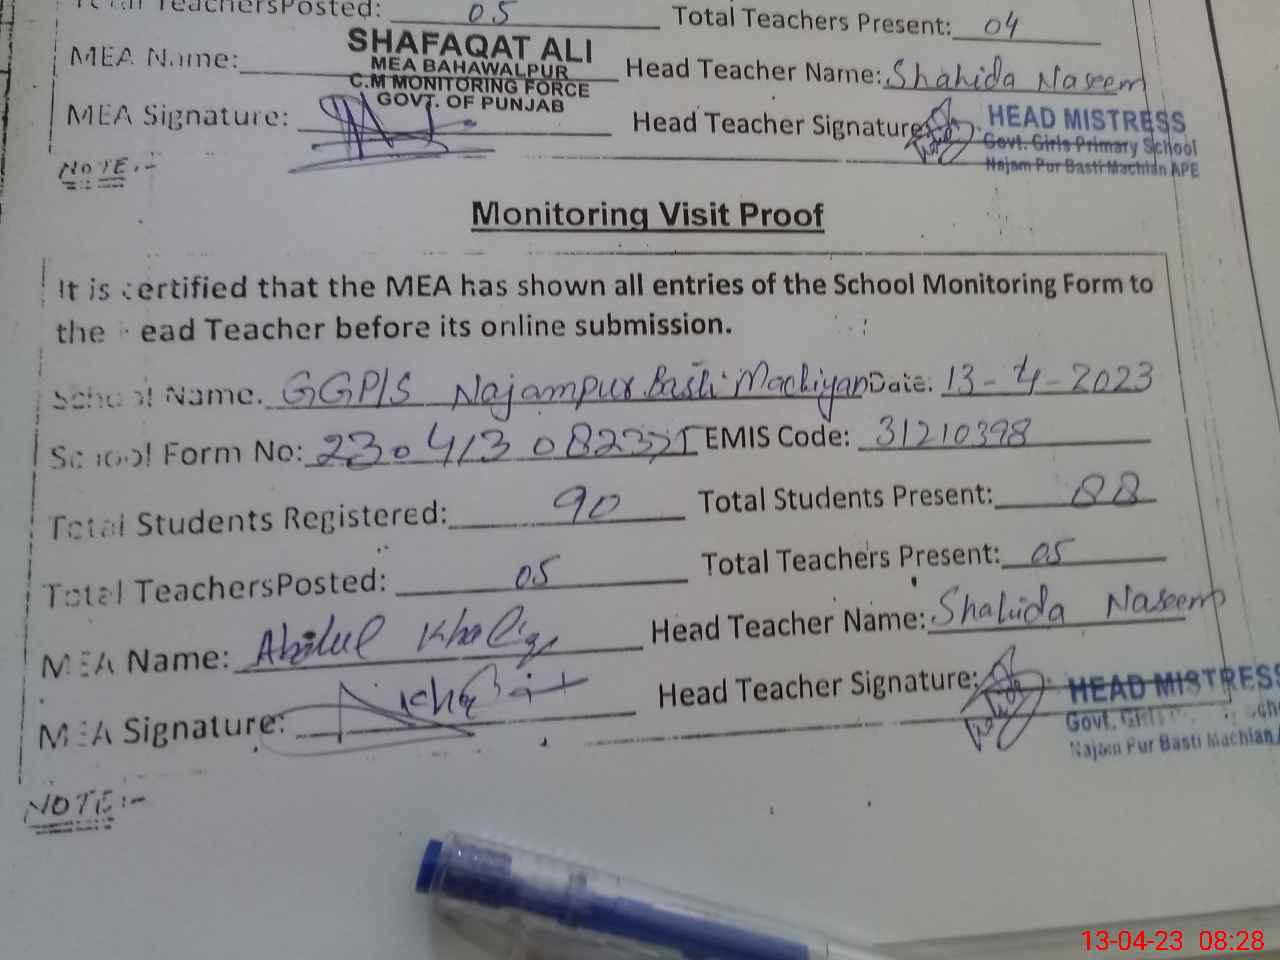 Total TeachersPosted: 05 Total Teachers Present: 04
MEA Name: SHAFAQAT ALI Head Teacher Name: Shahida Naseem
MEA BAHAWALPUR
C.M MONITORING FORCE
GOVT. OF PUNJAB
MEA Signature: Head Teacher Signature: HEAD MISTRESS
Govt. Girls Primary School
Najam Pur Basti Machian APE
NOTE:-
Monitoring Visit Proof
It is certified that the MEA has shown all entries of the School Monitoring Form to
the ead Teacher before its online submission.
School Name. GGP/S Najampur Basti Machiyan Date. 13-4-2023
School Form No: EMIS Code: 31210398
Total Students Registered: 90 Total Students Present: 88
Total TeachersPosted: 05 Total Teachers Present: 05
MEA Name: Abdul Khaliq Head Teacher Name: Shahida Naseem
MEA Signature: Head Teacher Signature: HEAD MISTRESS
Govt.
Najam Pur Basti Machian
NOTE:-
13-04-23 08:28